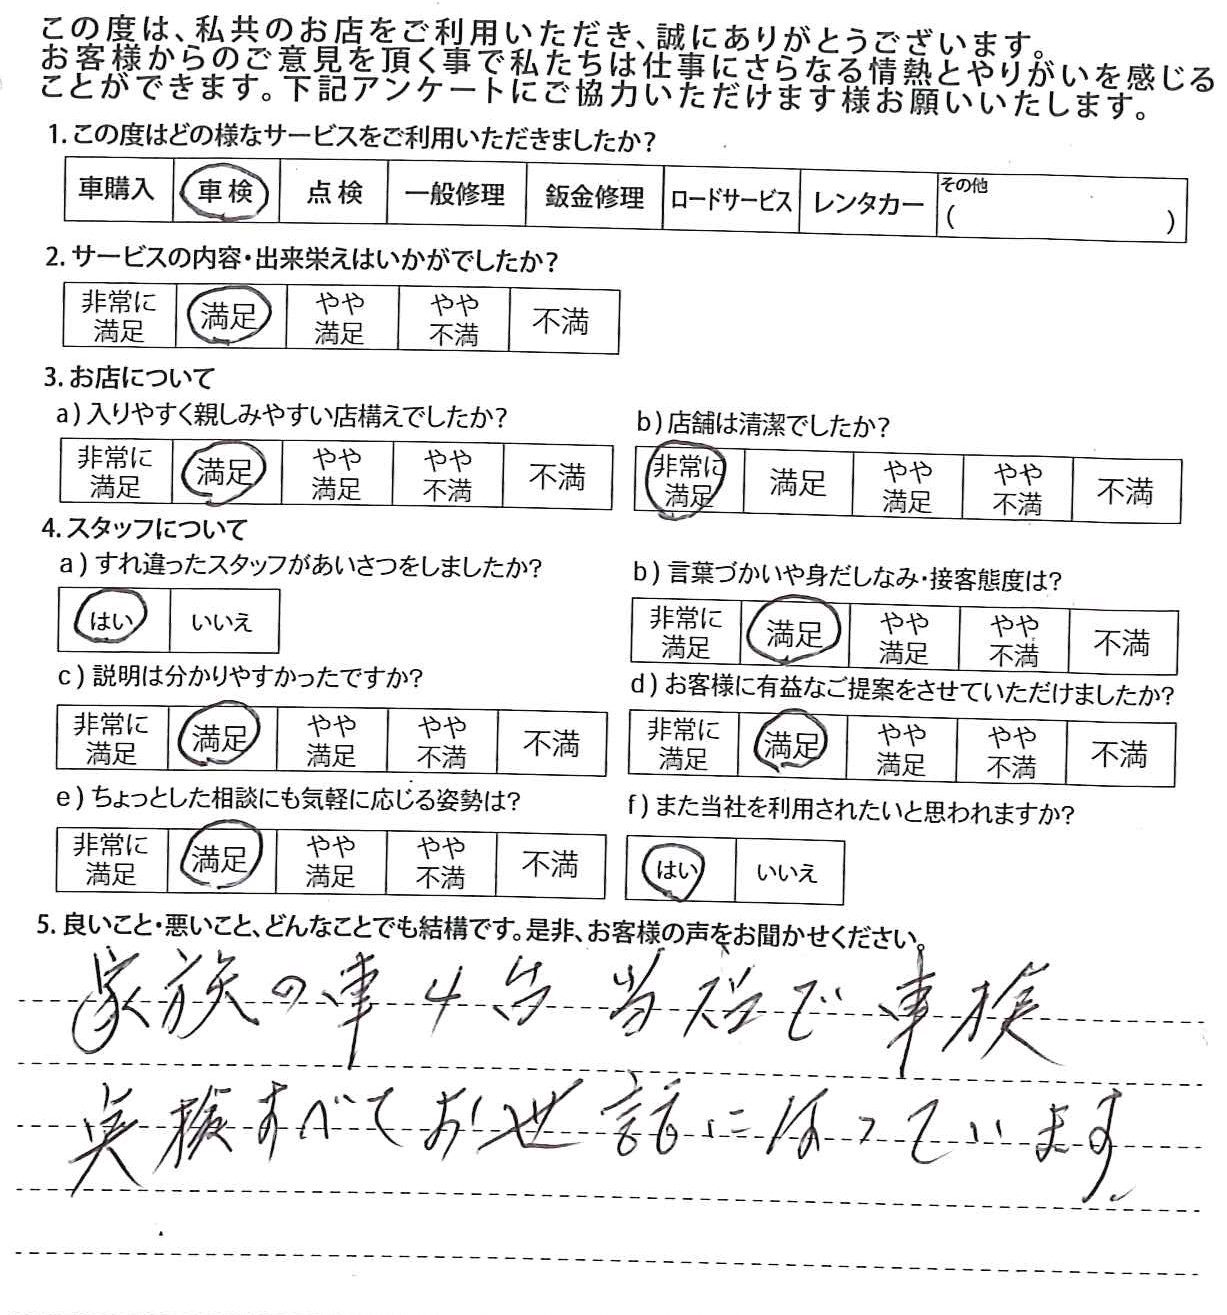 この度は、私共のお店をご利用いただき、誠にありがとうございます。
お客様からのご意見を頂く事で私たちは仕事にさらなる情熱とやりがいを感じる
ことができます。下記アンケートにご協力いただけます様お願いいたします。
1.この度はどの様なサービスをご利用いただきましたか?
車購入 車検 点検 一般修理 鈑金修理 ロードサービス レンタカー その他 ( )
2.サービスの内容・出来栄えはいかがでしたか?
非常に満足 満足 やや満足 やや不満 不満
3.お店について
a)入りやすく親しみやすい店構えでしたか?
非常に満足 満足 やや満足 やや不満 不満
b)店舗は清潔でしたか?
非常に満足 満足 やや満足 やや不満 不満
4.スタッフについて
a)すれ違ったスタッフがあいさつをしましたか?
はい いいえ
b)言葉づかいや身だしなみ・接客態度は?
非常に満足 満足 やや満足 やや不満 不満
c)説明は分かりやすかったですか?
非常に満足 満足 やや満足 やや不満 不満
d)お客様に有益なご提案をさせていただけましたか?
非常に満足 満足 やや満足 やや不満 不満
e)ちょっとした相談にも気軽に応じる姿勢は?
非常に満足 満足 やや満足 やや不満 不満
f)また当社を利用されたいと思われますか?
はい いいえ
5.良いこと・悪いこと、どんなことでも結構です。是非、お客様の声をお聞かせください。
家族の車4台 当社で 車検
すべてお世話になっています。